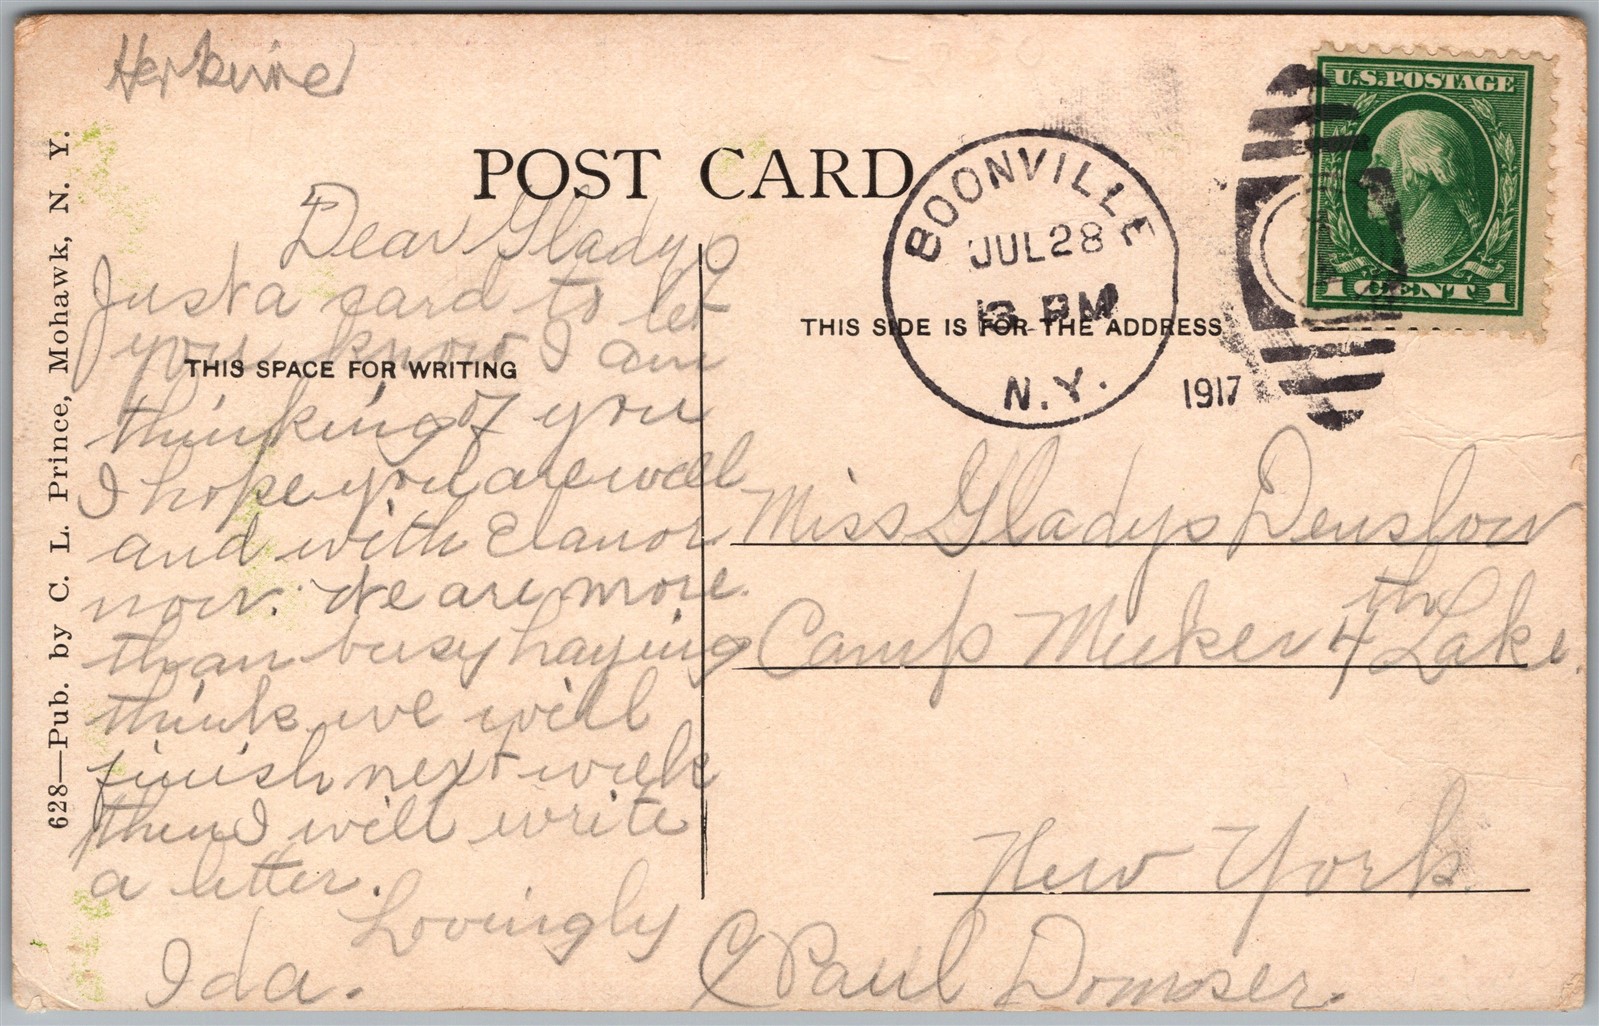 Herkime
POST CARD
BOONVILLE
JUL 28
PM
N.Y.
1917
U.S. POSTAGE
1 CENT 1
THIS SPACE FOR WRITING
THIS SIDE IS FOR THE ADDRESS
628—Pub. by C. L. Prince, Mohawk, N. Y.
Dear Gladys
Just a card to let
you know I am
thinking of you
I hope you are well
and with Elanor
now. We are more
than busy haying
think we will
finish next week
then I will write
a letter.
Lovingly
Ida.
Miss Gladys Denslow
Camp Meeker 4th Lake.
New York
C/ Paul Domser.